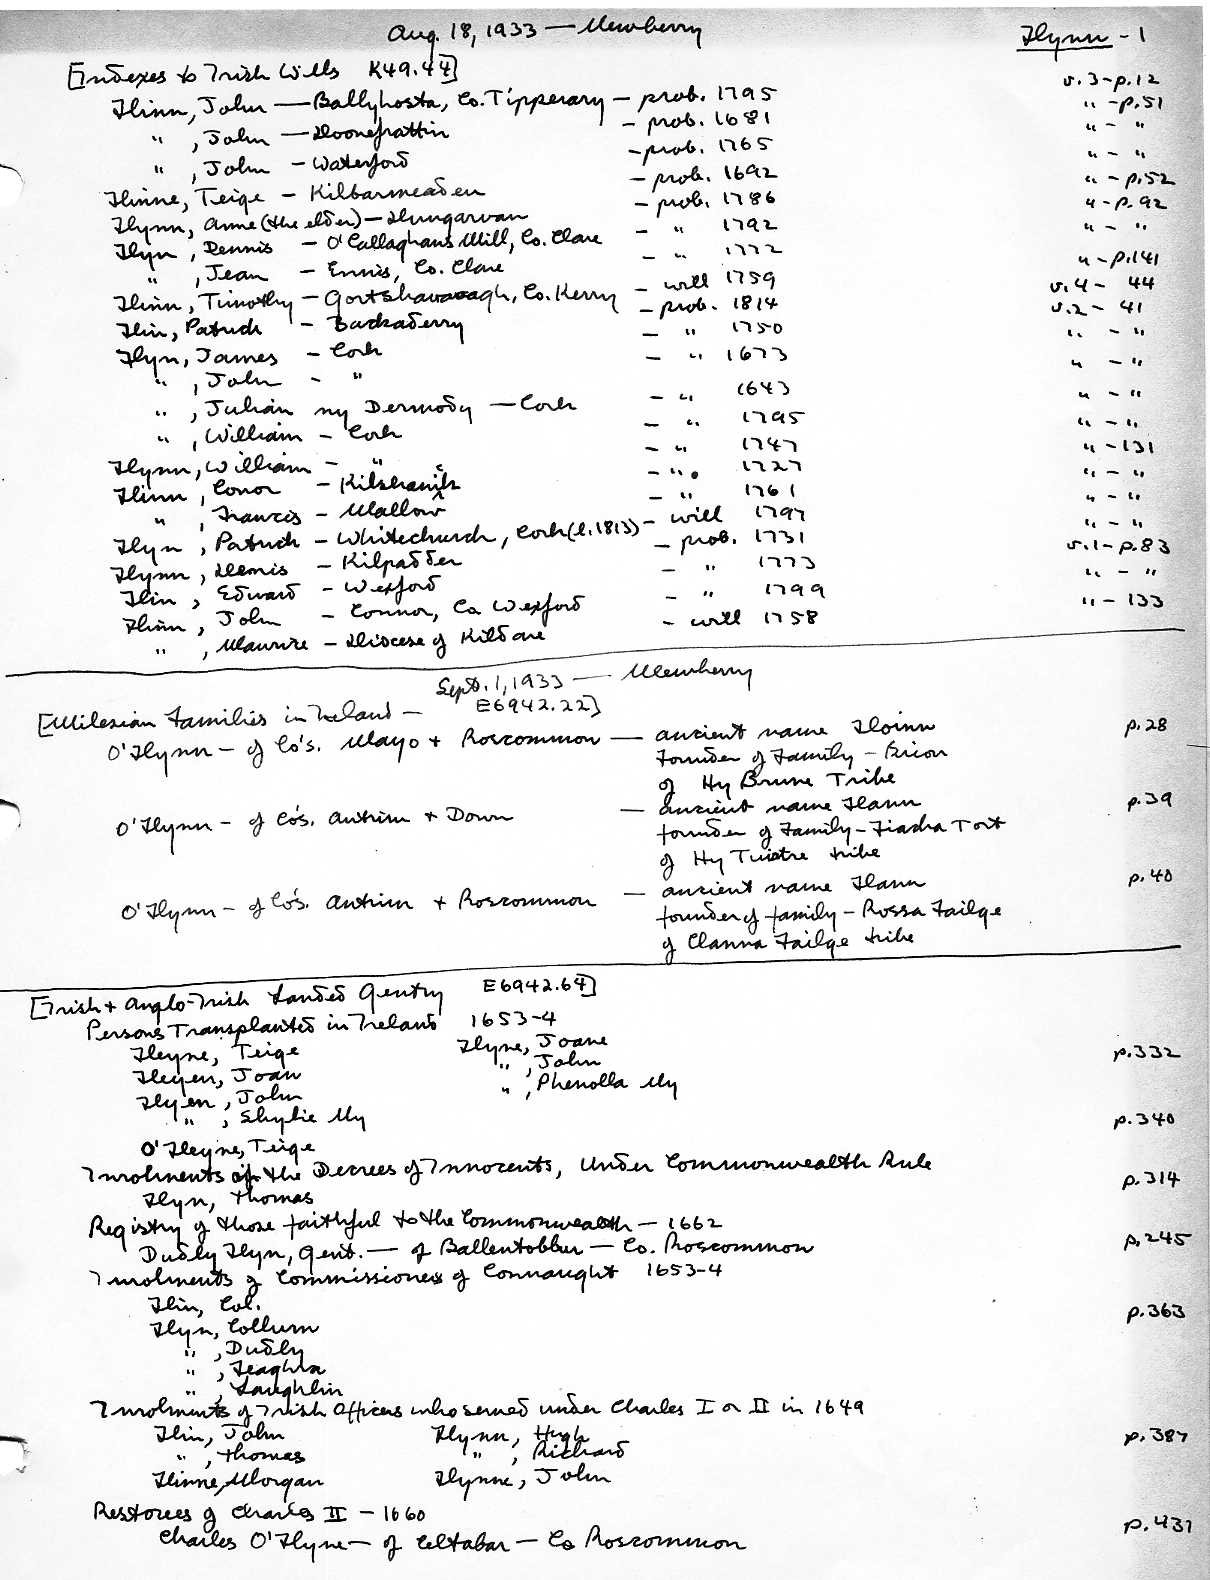 Aug. 18, 1933 — Newberry Flynn - 1
[Indexes to Irish Wills K49.44]
Flinn, John — Ballyhosta, Co. Tipperary - prob. 1795 v.3-p.12
" , John — Doonefrattin - prob. 1681 " - p.51
" , John - Waterford - prob. 1765 " - "
Flinne, Teige - Kilbarmeaden - prob. 1692 " - "
Flynn, Anne (the elder) - Dungarvan - prob. 1786 " - p.52
Flyn, Dennis - O'Callaghans Mill, Co. Clare - " 1792 " - p.92
" , Jean - Ennis, Co. Clare - " 1772 " - "
Flinn, Timothy - Co. Kerry - will 1759 " - p.141
Flin, Patrick - Backaderry - prob. 1814 v.4 - 44
Flyn, James - Cork - " 1750 v.2 - 41
" , John - " - " 1673 " - "
" , Julian ny Dermody - Cork - " 1643 " - "
" , William - Cork - " 1795 " - "
Flynn, William - " - " 1747 " - "
Flinn, Conor - - " 1727 " - 131
" , Francis - Mallow - " 1761 " - "
Flyn, Patrick - Whitechurch, Cork (l. 1813) - will 1797 " - "
Flynn, Dennis - Kilpadder - prob. 1731 " - "
Flin, Edward - Wexford - " 1773 v.1-p.83
Flinn, John - Connor, Co Wexford - " 1799 " - "
" , Maurice - Diocese of Kildare - will 1758 " - 133
Sept. 1, 1933 — Newberry
[Milesian Families in Ireland - E6942.22]
O'Flynn - of Co's. Mayo + Roscommon — ancient name Floinn p.28
Founder of Family - Brion
of Hy Brune Tribe
O'Flynn - of Co's. Antrim + Down — ancient name Flann p.39
founder of Family - Fiacha Tort
of Hy Tuirtre tribe
O'Flynn - of Co's. Antrim + Roscommon — ancient name Flann p.40
founder of family - Rossa Failge
of Clanna Failge tribe
[Irish + Anglo-Irish Landed Gentry E6942.64]
Persons Transplanted in Ireland 1653-4
Fleyne, Teige Flyne, Joane p.332
Fleyen, Joan " , John
Flyen, John " , Phenolla Ny
" , Shylie Ny
O'Fleyne, Teige p.340
Inrolments of the Decrees of Innocents, Under Commonwealth Rule
Flyn, Thomas p.314
Registry of those faithful to the Commonwealth - 1662
Dudly Flyn, Gent. — of Ballentobber - Co. Roscommon p.245
Inrolments of Commissioners of Connaught 1653-4
Flin, Col. p.363
Flyn, Collum
" , Dudly
" , Feaghra
" , Laughlin
Inrolments of Irish Officers who served under Charles I or II in 1649
Flin, John Flynn, Hugh p.387
" , Thomas " , Richard
Flinne, Morgan Flynne, John
Restorees of Charles II - 1660
Charles O'Flyne - of Celtabar - Co Roscommon p.437